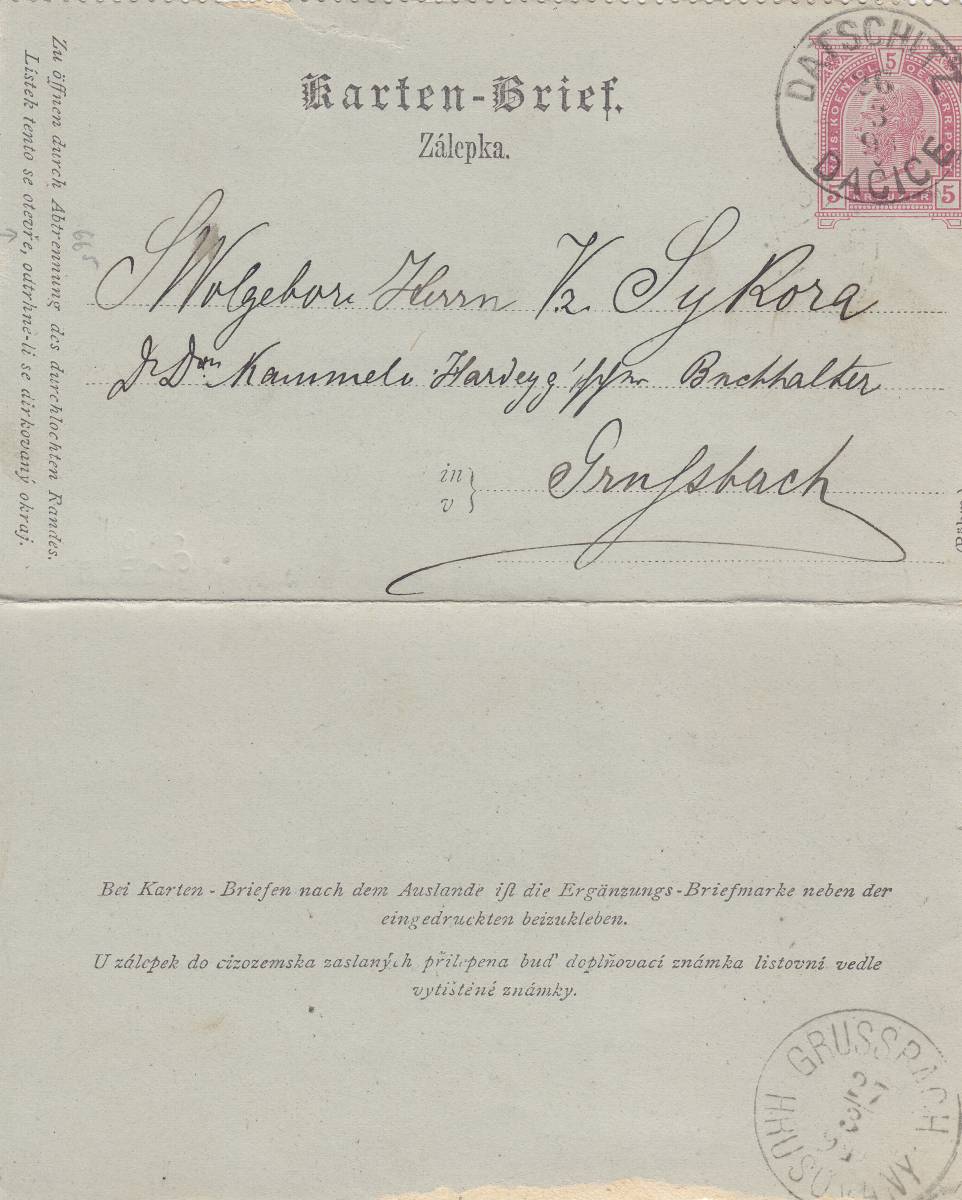 Zu öffnen durch Abtrennung des durchlochten Randes.
Lístek tento se otevře, odtrhne-li se dírkovaný okraj.
665
Karten-Brief.
Zálepka.
DATSCHITZ
DAČICE
KAIS. KOENIGL. OESTERR. POST
5
5 KREUZER 5
Wolgebore Herrn Vz. Sykora
Hardegg Buchhalter
in
v
Grussbach
(Böhm.)
Bei Karten-Briefen nach dem Auslande ist die Ergänzungs-Briefmarke neben der
eingedruckten beizukleben.
U zálepek do cizozemska zaslaných přilepena buď doplňovací známka listovní vedle
vytištěné známky.
GRUSSBACH
HRUŠOVANY